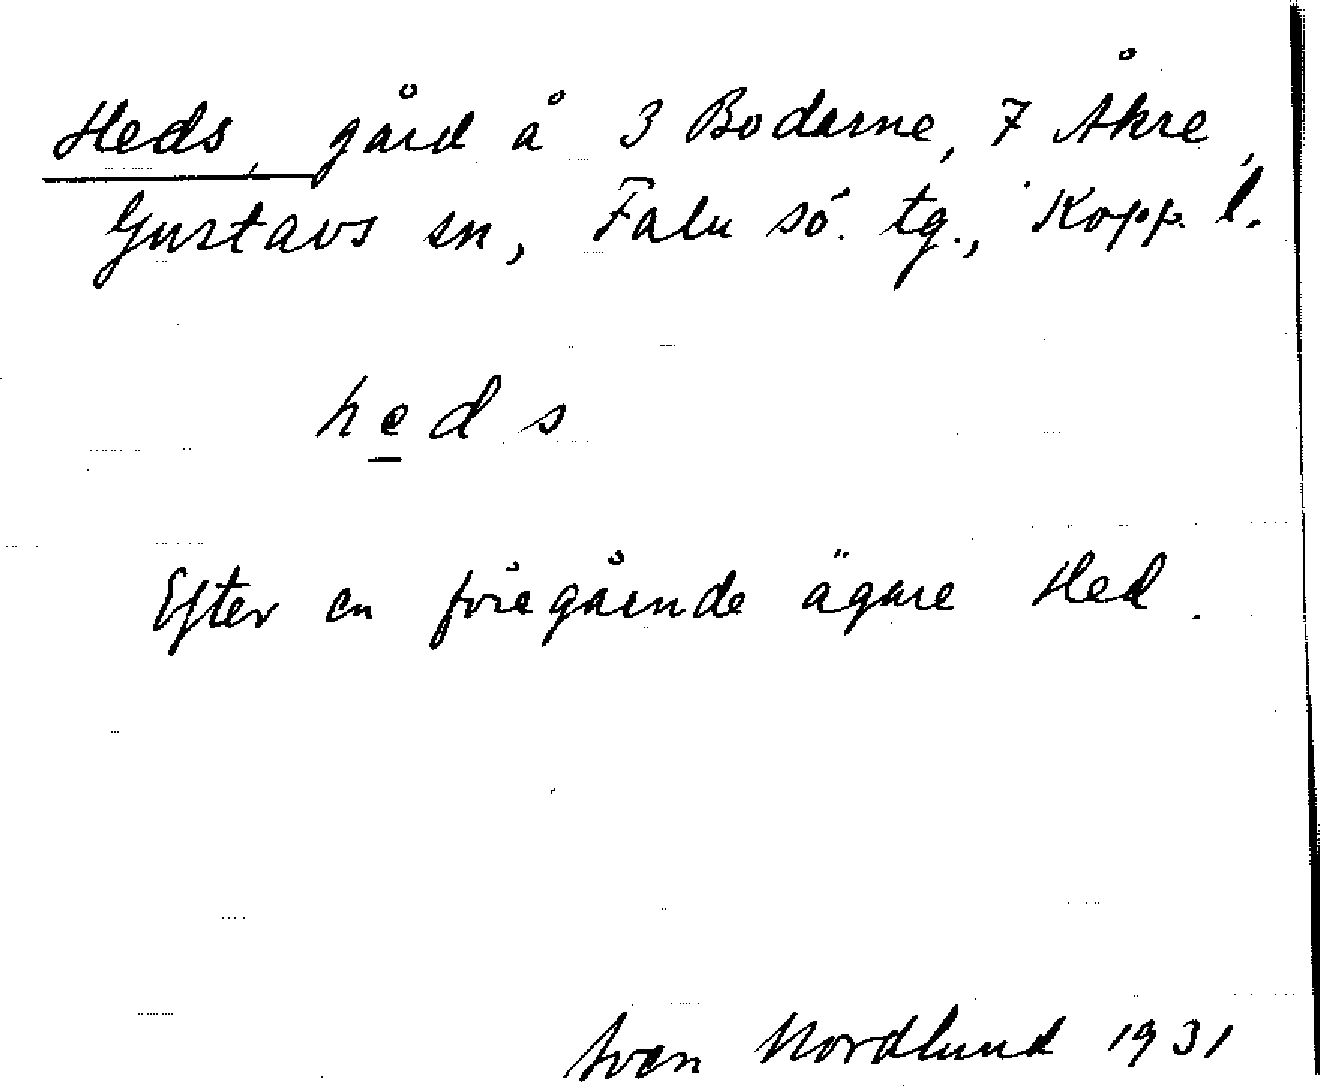 Heds, gård å 3 Boderne, 7 Åkre,
Gustavs sn, Falu sö. tg., Kopp. l.
heds
Efter en föregående ägare Hed.
Sven Nordlund 1931